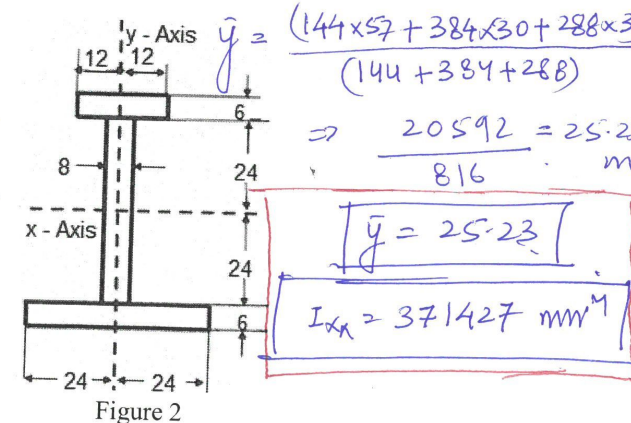 y - Axis
12 12
6
8
24
x - Axis
24
6
24 24
Figure 2
ȳ = (144×57 + 384×30 + 288×3
(144 + 384 + 288)
⇒ 20592 = 25.2
816 m
ȳ = 25.23
Ixx = 371427 mm⁴